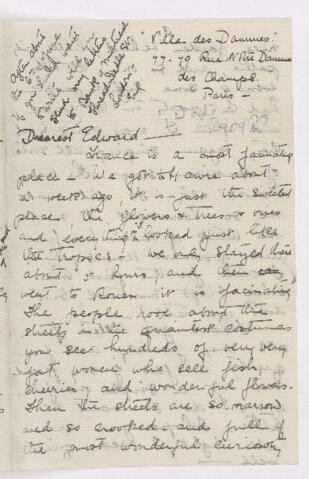 Villa des Dammes:
77-79 Rue Nôtre Damme
des Champs.
Paris -
After about
send our letters
to
Dearest Edward -
France is a most facinating
place - We got to
a week ago, it is just the sweetest
place the flowers & trees & roses
and everything looked just like
the tropics - we only stayed there
about hours and then
went to Rouen. it is facinating
The people rove about the
streets in the quaintest costumes
you see hundreds of very very
fat women who sell fish,
cherries and wonderful flowers.
Then the streets are so narrow
and so crooked and full of
the most wonderful curiosity